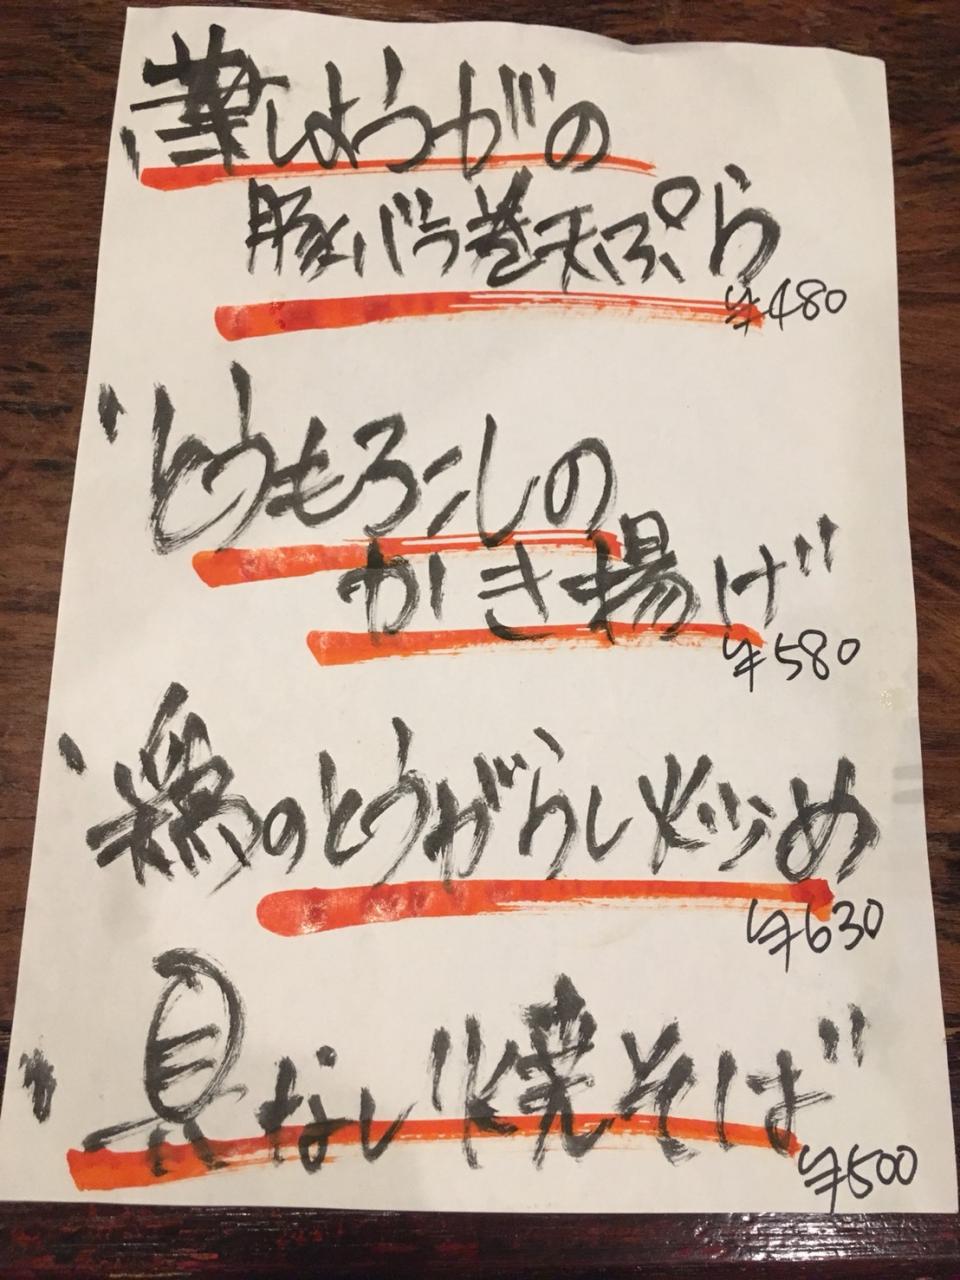 葉しょうがの
豚バラ巻天ぷら
¥480
"とうもろこしの
かき揚げ"
¥580
鶏のとうがらし炒め
¥630
"具なし"焼そば"
¥500